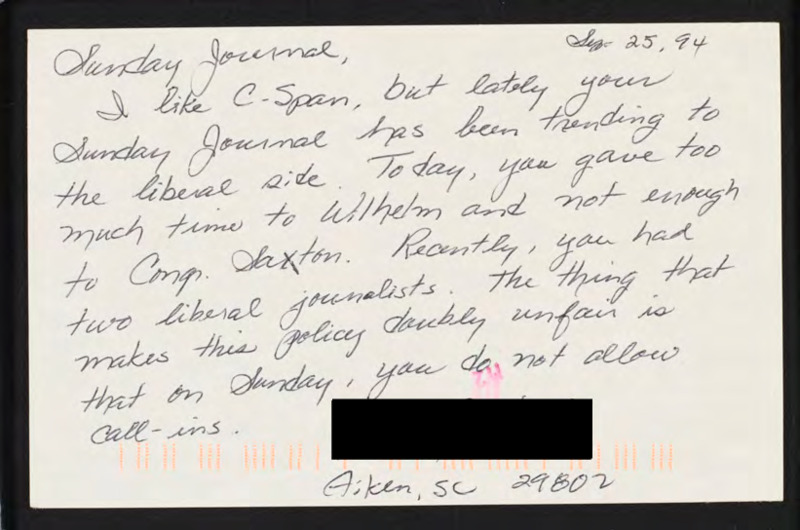 Sep. 25, 94
Sunday Journal,
I like C-Span, but lately your
Sunday Journal has been trending to
the liberal side. Today, you gave too
much time to Wilhelm and not enough
to Congr. Saxton. Recently, you had
two liberal journalists. The thing that
makes this policy doubly unfair is
that on Sunday, you do not allow
call-ins.
Aiken, SC 29802